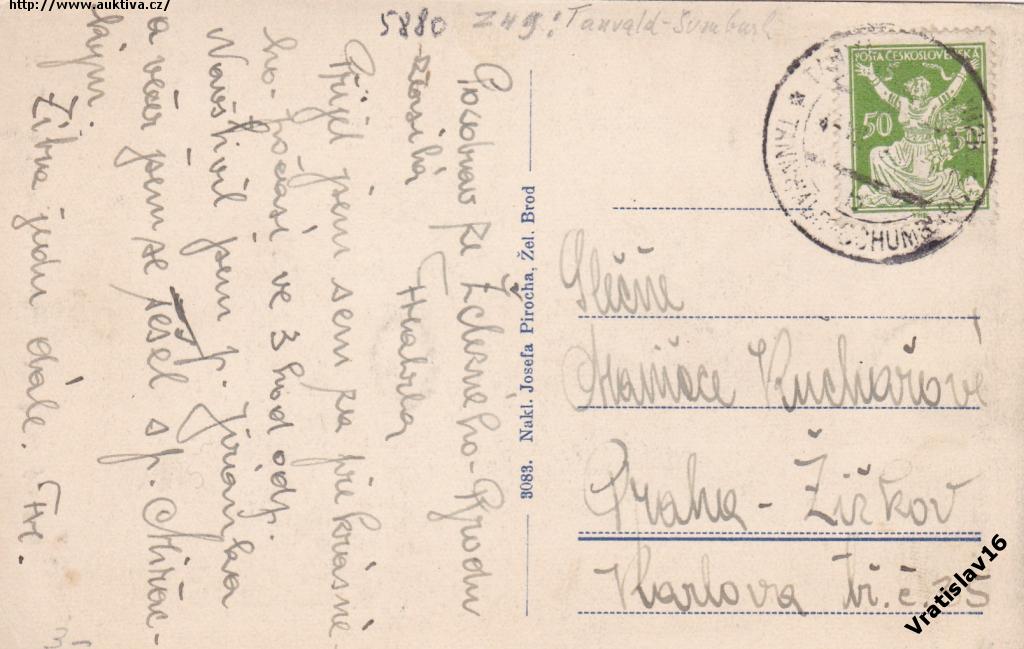 http://www.auktiva.cz/
5880 zug: Tanvald-Šumburk
Pozdrav ze Železného-Brodu
zasílá
Hlubička
Přijel jsem sem za překrásné
ho počasí ve 3 hod odp.
Navštívil jsem p. Jirouška
a večer jsem se sešel s p.
kým
Zítra jedu dále.
3083. Nakl. Josefa Pirocha, Žel. Brod
POŠTA ČESKOSLOVENSKÁ
50 50
TANNWALD-SCHUMBURG
Slečně
Mařence Kuchařové
Praha - Žižkov
Karlova tř. č. 35
Vratislav16